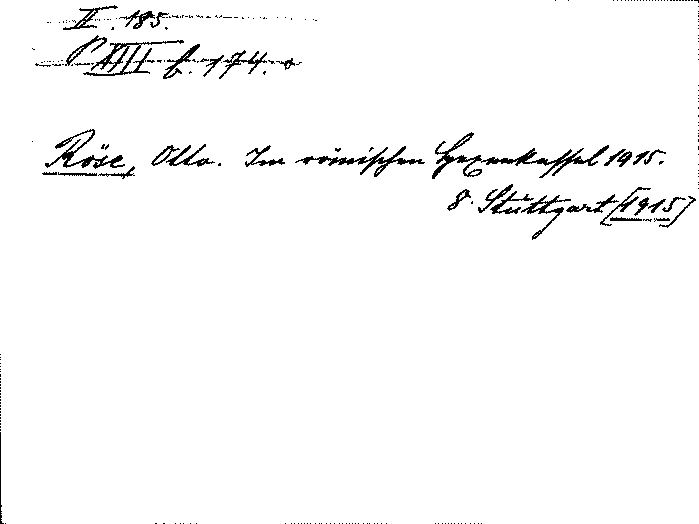 II. 185.
P XIII f. 174. o
Röse, Otto. Im römischen Hexenkessel 1915.
8. Stuttgart [1915]